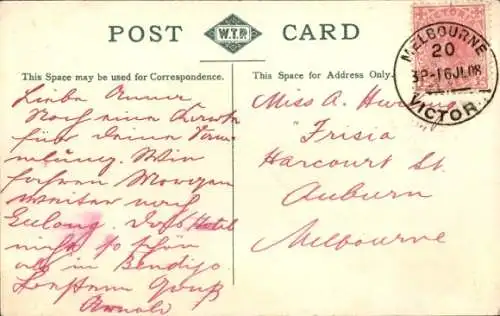 POST CARD
W.T.P.
This Space may be used for Correspondence.
This Space for Address Only.
MELBOURNE
20
3P-16JL08
VICTOR
Liebe Anna
Noch eine Karte
für deine Sam-
melung. Wir
fahren Morgen
weiter nach
Geelong. Das Hotel
nicht so schön
als in Bendigo
Gruß
Arnold
Miss A.
"Frisia
Harcourt St.
Auburn
Melbourne